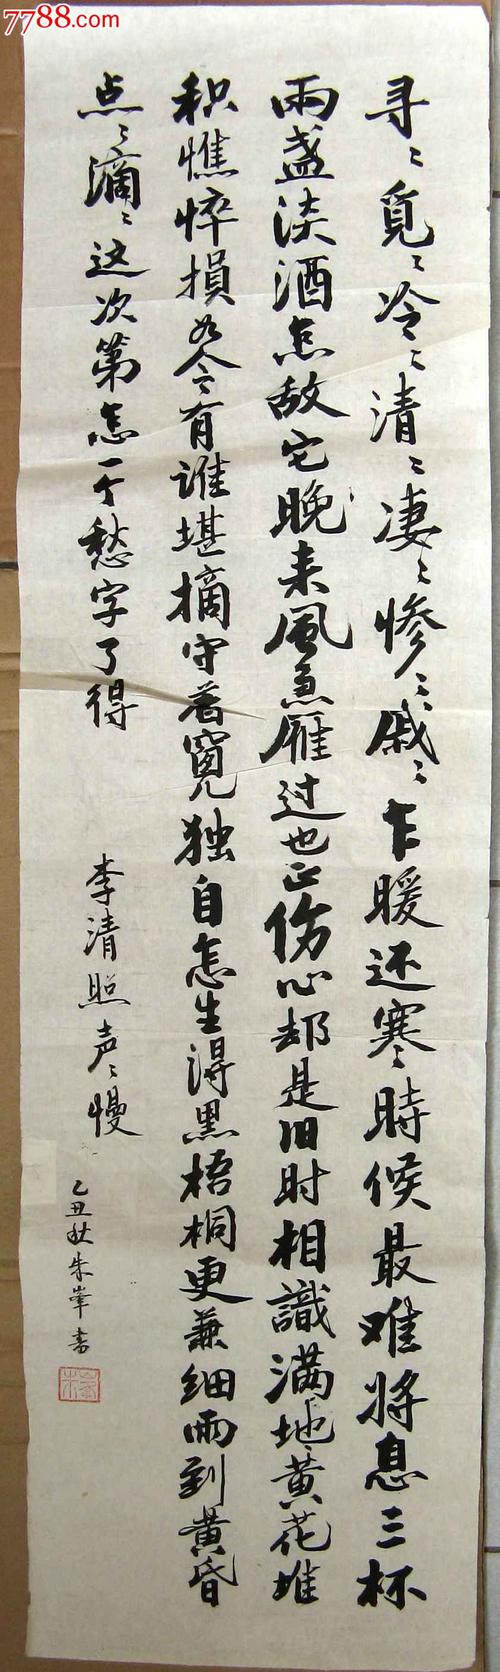 7788.com
寻〻觅〻冷〻清〻凄〻惨〻戚〻乍暖还寒时候最难将息三杯
两盏淡酒怎敌它晚来風急雁过也正伤心却是旧时相識满地黄花堆
积憔悴損如今有谁堪摘守着窗兒独自怎生得黑梧桐更兼细雨到黄昏
点〻滴〻这次第怎一个愁字了得
李清照声〻慢
乙丑秋朱峯书